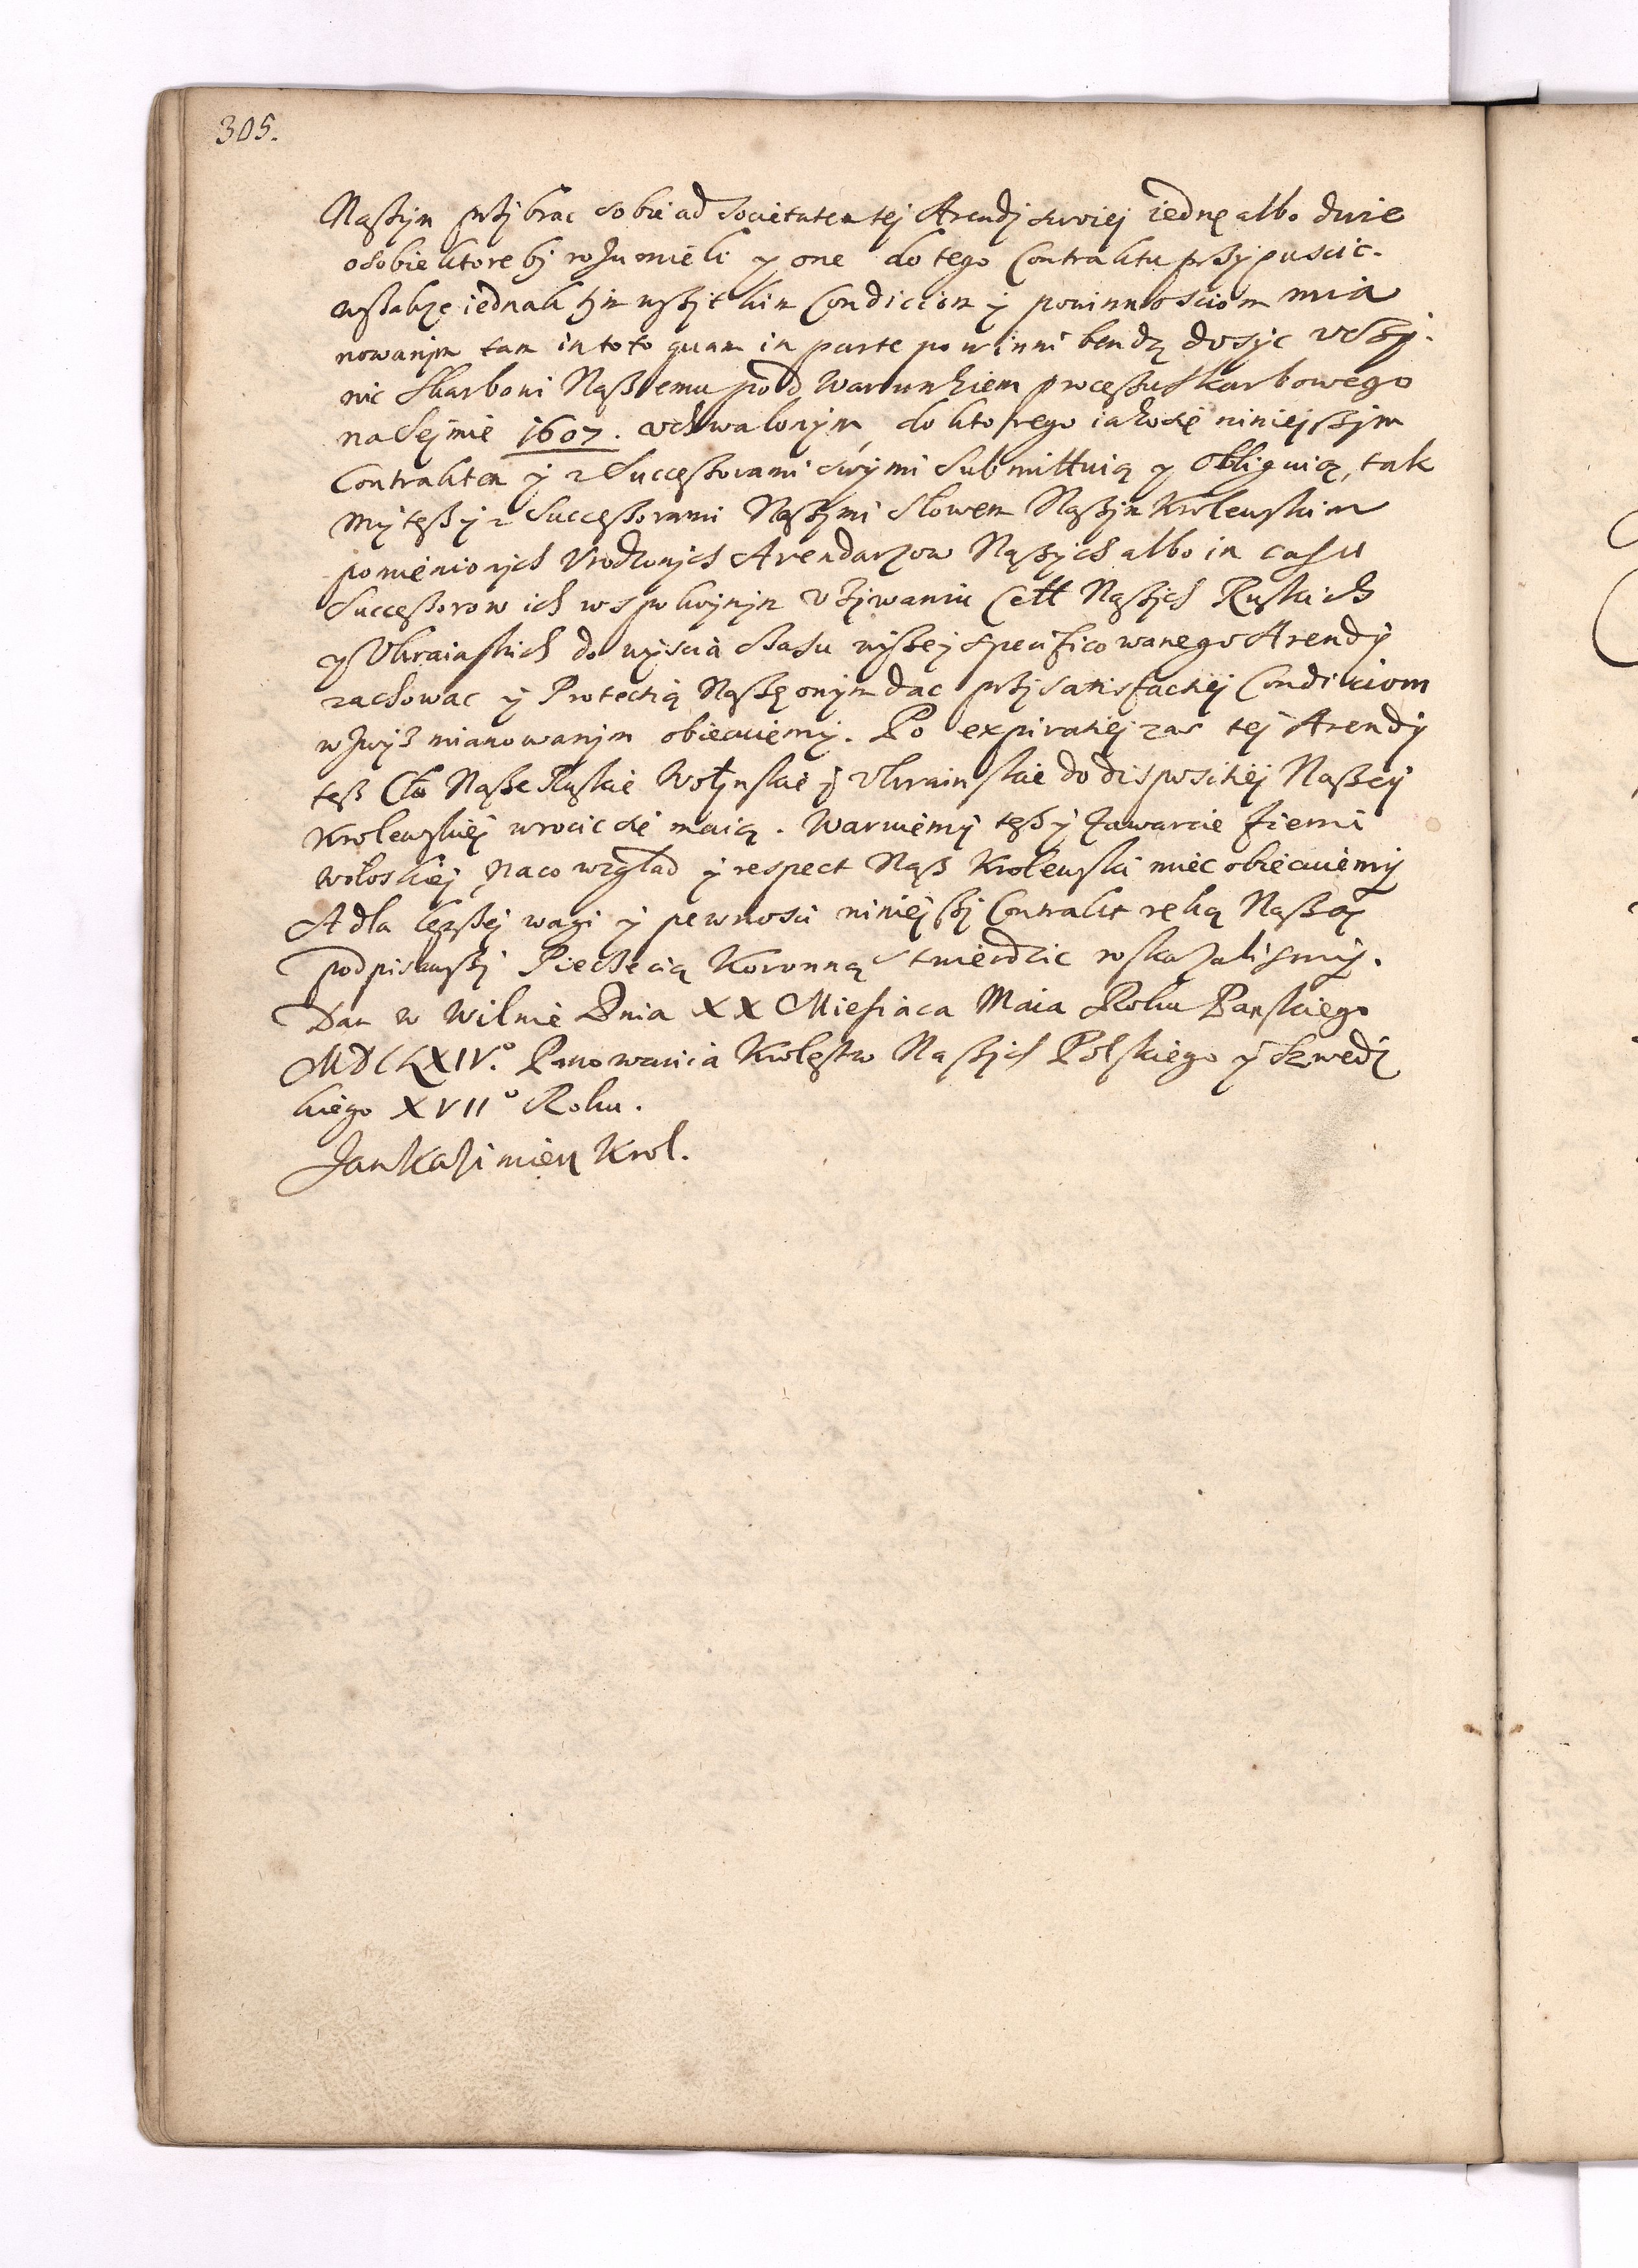 305.
Naßym przybrac sobie ad Societatem tej Arendy swoiej iednę albo dwie
osobie ktore by rozumieli y one do tego Contraktu przypuscic.
wßakze iednak tym wßytkim Condiciom y powinnosciom mia
nowanym tam in toto quam in parte powinni bendą dosyc vczy.
nic Skarbowi Naßemu pod Warunkiem proceßu Skarbowego
na Sejmie 1607. vchwalonym, do ktorego iako się niniejßym
Contraktem y z Succeßorami swymi Submittuią y Obliguią, tak
my teß y z Succeßorami Naßymi Słowem Naßym Krolewskim
pomienionych Vrodzonych Arendarzow Naßych albo in casu
Succeßorow ich w spokoynym vżywaniu Cełł Naßych Ruskich
y Vkrainskich do wyscia Czasu wyßey specificowanego Arendy
zachowac y Protectią Naßę onym dac przy satisfactiej Conditiom
wzwyż mianowanym obiecuiemy. Po expiratiej zas tej Arendy
teß Cła Naße Ruskie Wołynskie y Vkrainskie do dispositiej Naßey
Krolewskiej wrocic się maią. Waruiemy teß y Zawarcie Ziemi
Wołoskiej, na co wzgląd y respect Naß Krolewski miec obiecuiemy
A dla lepßej wagi y pewnosci niniejßy Contrakt ręką Naßą
podpisawßy Pieczecią Koronną stwierdzic roskazalismy.
Dan w Wilnie Dnia XX Miesiaca Maia Roku Panskiego
MDCLXIV.º Panowania Krolestw Naßych Polskiego y Szwedz
kiego XVIIº Roku.
Jan Kazimierz Krol.